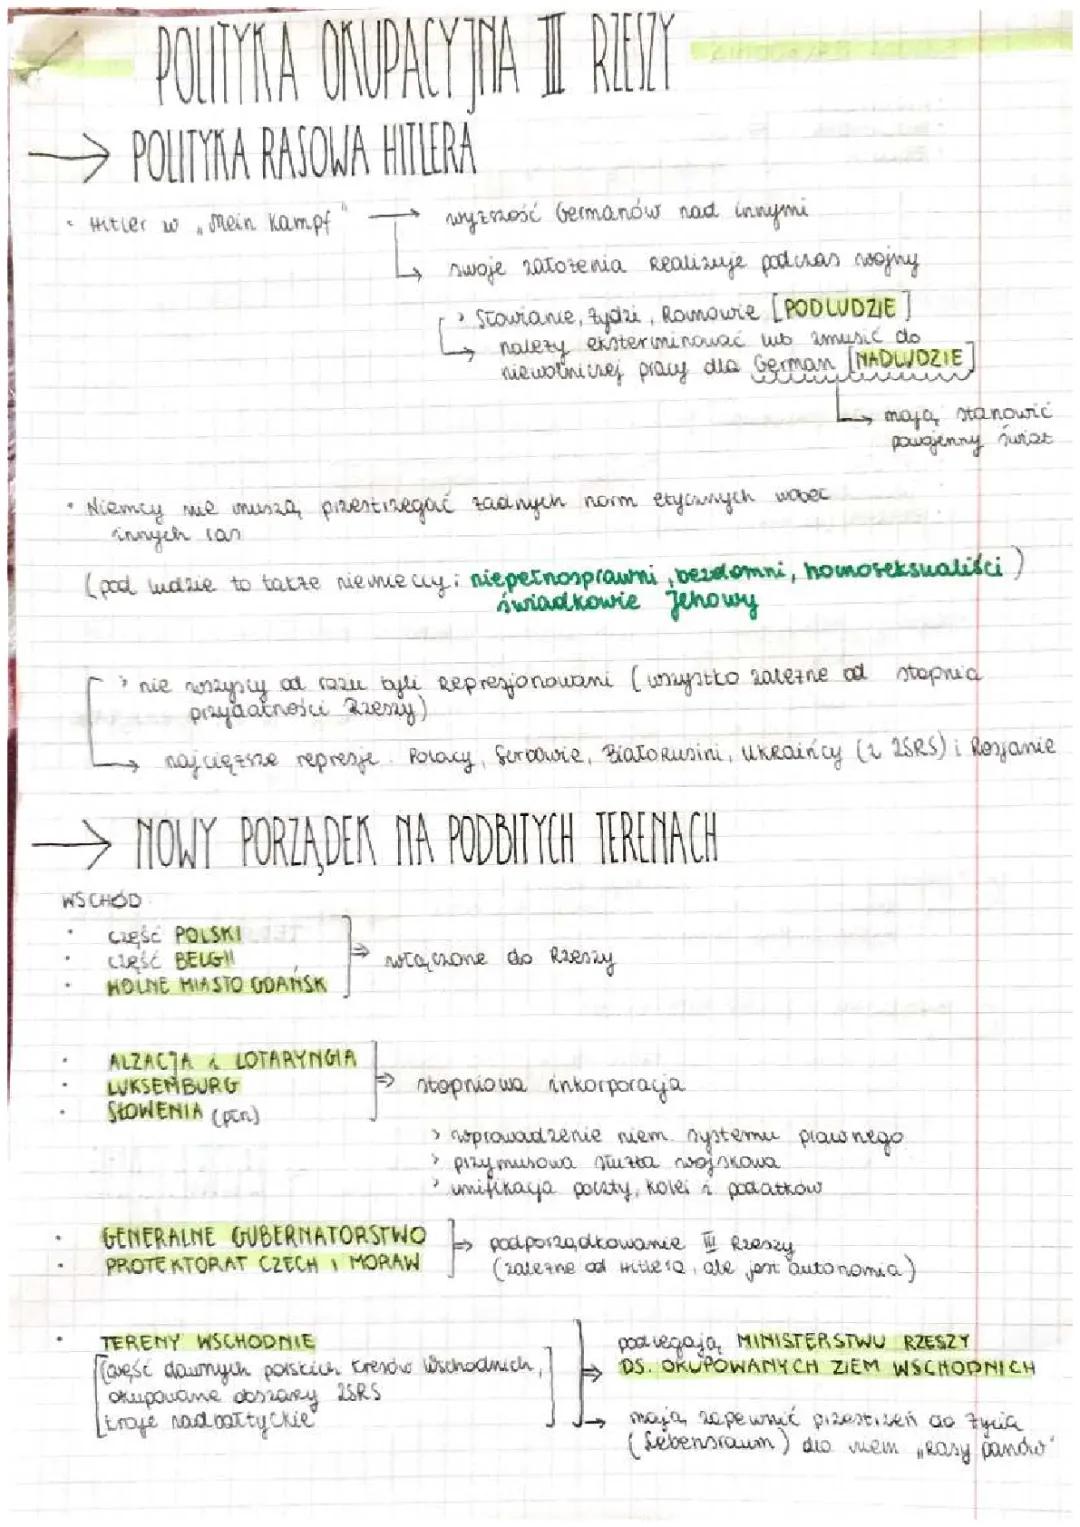 POLITYKA OKUPACYJNA III RZESZY
→ POLITYKA RASOWA HITLERA
• Hitler w „Mein Kampf" → wyższość Germanów nad innymi
↳ swoje założenia realizuje podczas wojny
> Słowianie, Żydzi, Romowie [PODLUDZIE]
↳ należy eksterminować lub zmusić do
niewolniczej pracy dla German [NADLUDZIE]
↳ mają stanowić
powojenny świat
• Niemcy nie muszą przestrzegać żadnych norm etycznych wobec
innych ras
(pod ludzie to także niemiecy: niepełnosprawni, bezdomni, homoseksualiści)
świadkowie Jehowy
> nie wszyscy od razu byli represjonowani (wszystko zależne od stopnia
przydatności Rzeszy)
↳ najcięższe represje: Polacy, Serbowie, Białorusini, Ukraińcy (z ZSRS) i Rosjanie
→ NOWY PORZĄDEK NA PODBITYCH TERENACH
WSCHÓD
• część POLSKI
• część BELGII ⇒ włączone do Rzeszy
• WOLNE MIASTO GDAŃSK
• ALZACJA i LOTARYNGIA
• LUKSEMBURG ⇒ stopniowa inkorporacja
• SŁOWENIA (płn)
> wprowadzenie niem. systemu prawnego
> przymusowa służba wojskowa
> unifikacja poczty, kolei i podatków
• GENERALNE GUBERNATORSTWO → podporządkowanie III Rzeszy
• PROTEKTORAT CZECH i MORAW (zależne od Hitlera, ale jest autonomia)
• TERENY WSCHODNIE podlegają MINISTERSTWU RZESZY
[część dawnych polskich kresów Wschodnich, ⇒ DS. OKUPOWANYCH ZIEM WSCHODNICH
okupowane obszary ZSRS
kraje nadbałtyckie ↳ mają zapewnić przestrzeń do życia
(Lebensraum) dla niem „rasy panów"